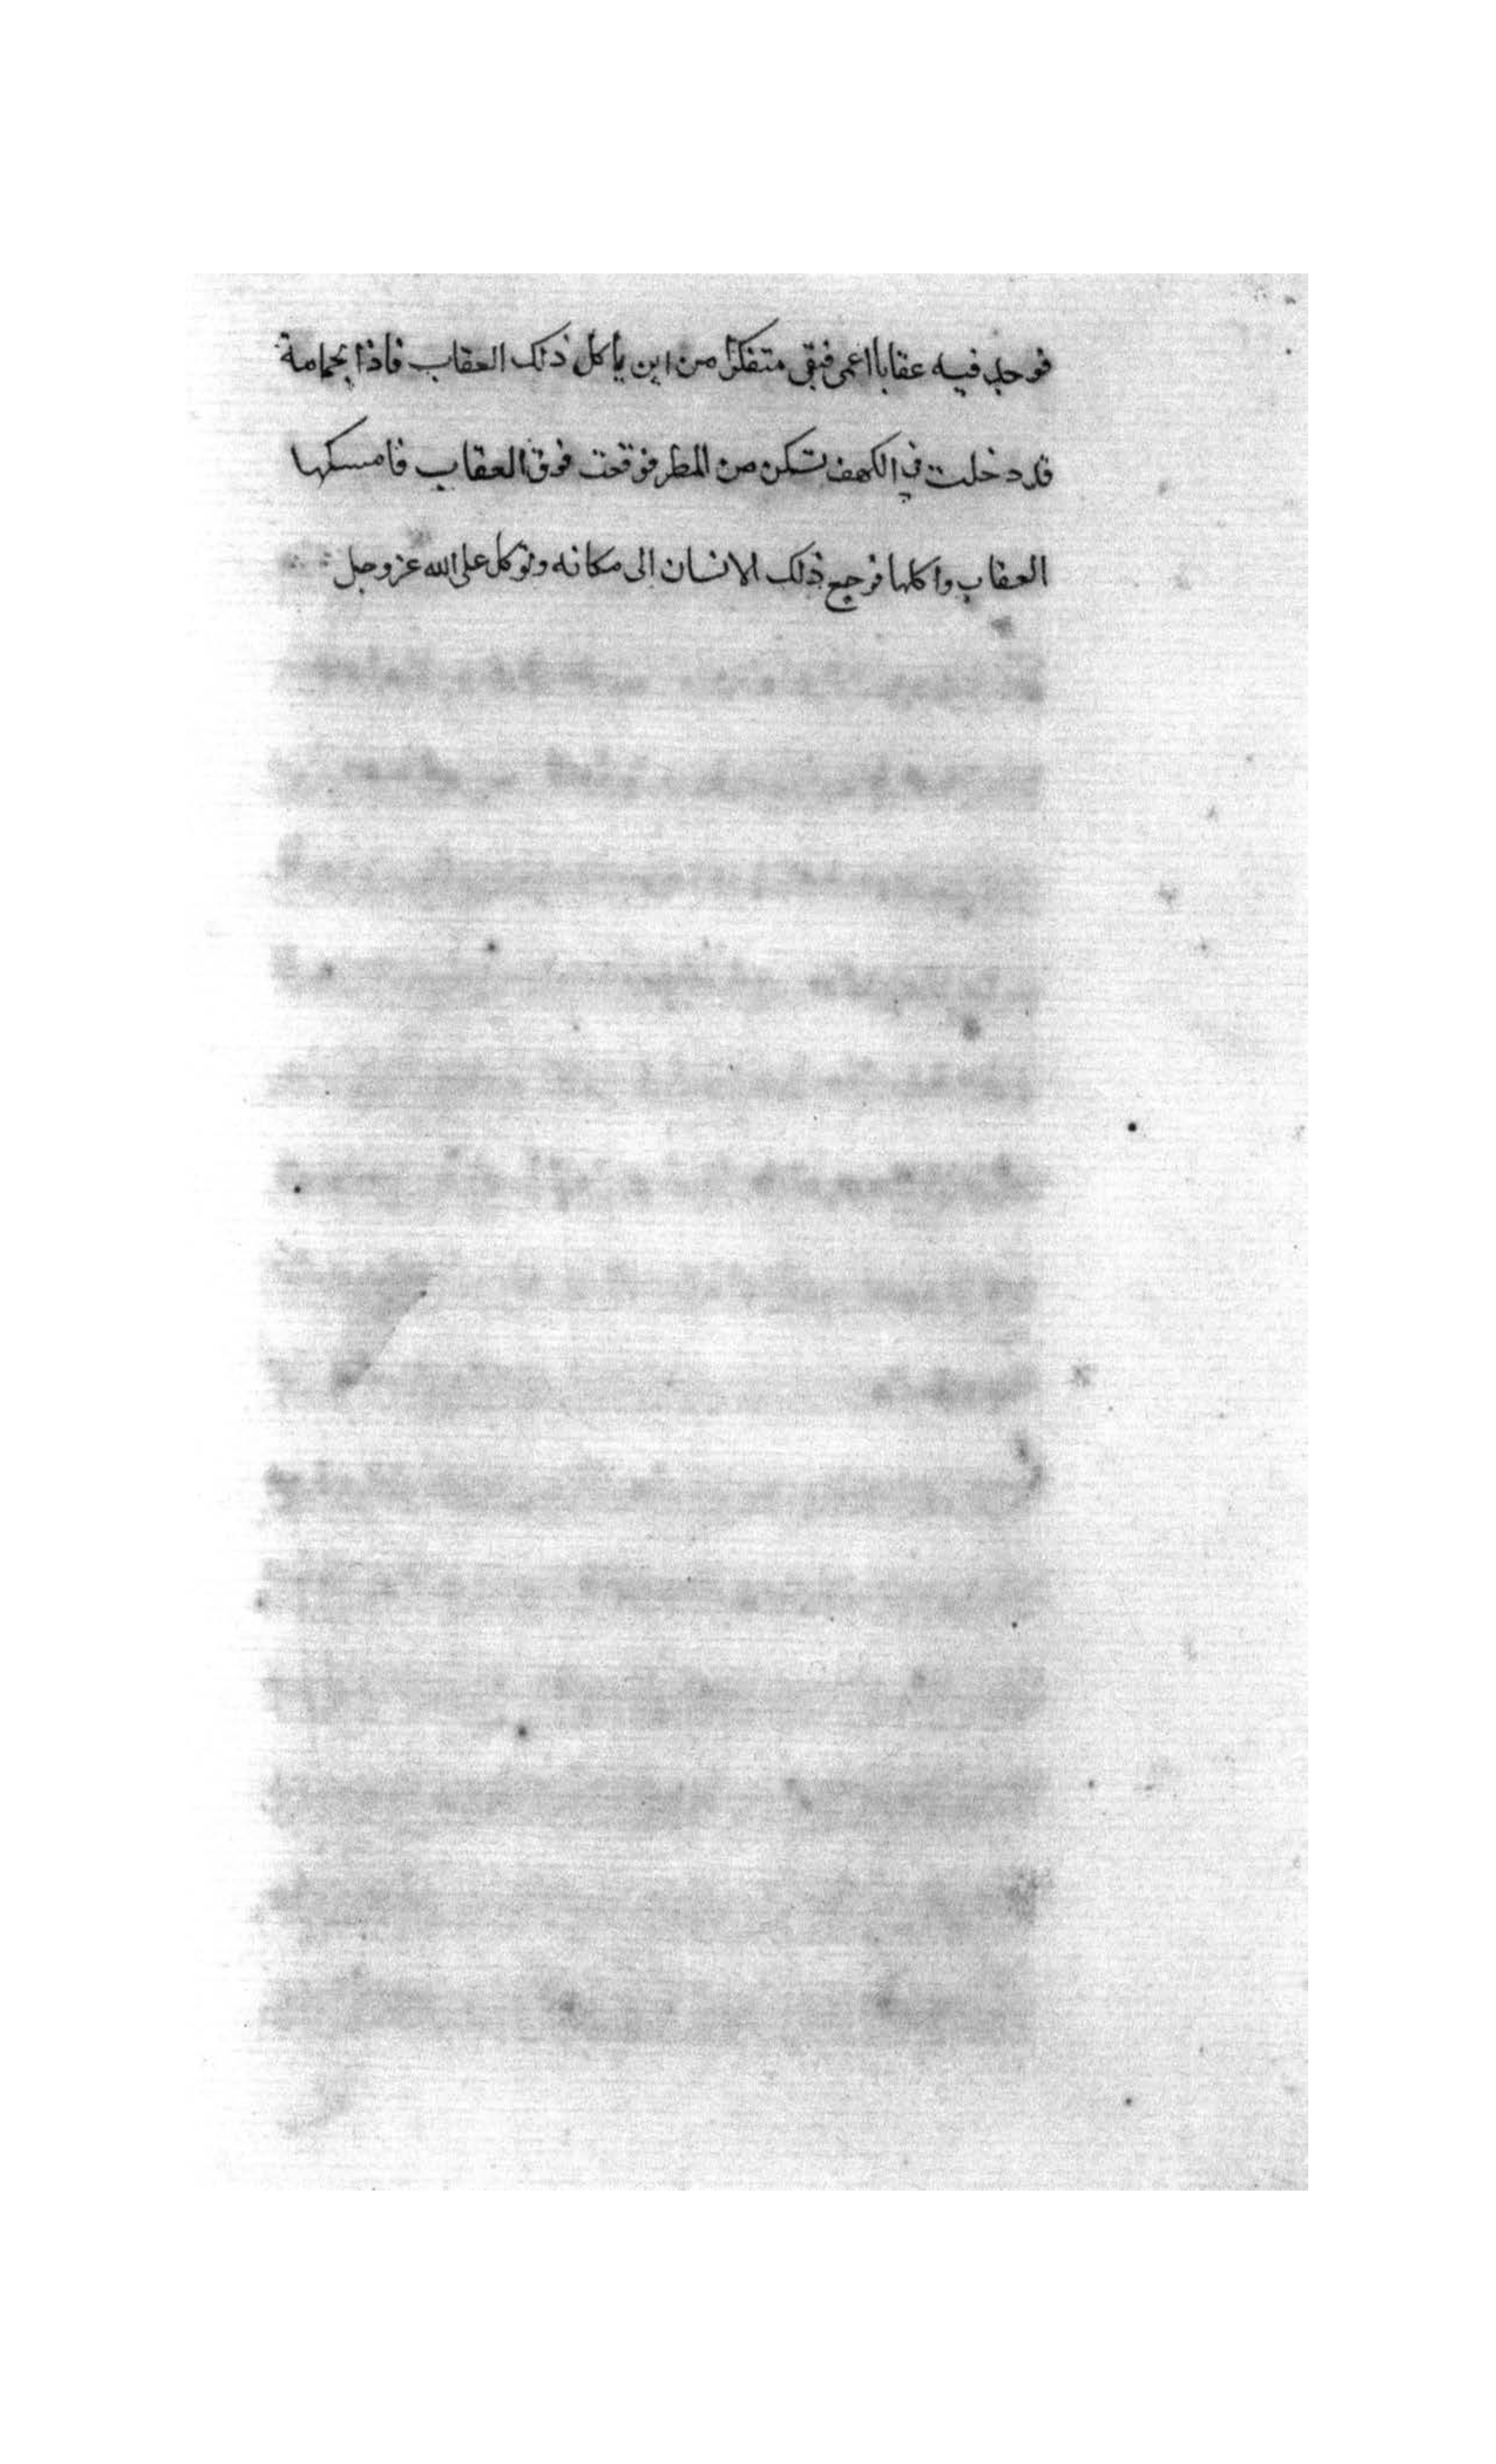 فوجد فيه عقابا اعمى فبقى متفكرا من اين ياكل ذلك العقاب فاذا بحمامة
قد دخلت في الكهف تسكن من المطر فوقعت فوق العقاب فامسكها
العقاب واكلها فرجع ذلك الانسان الى مكانه وتوكل على الله عز وجل